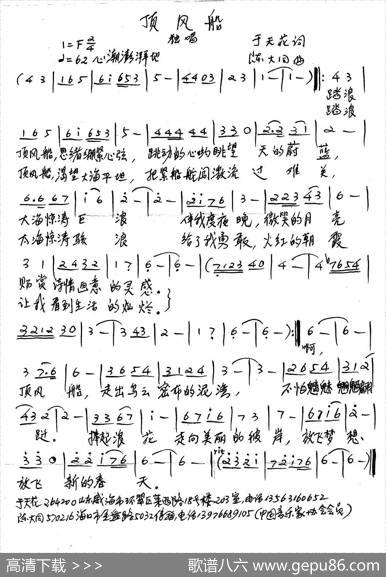 顶风船
独唱
1=F 2/4
于天花词
♩=62 心潮澎湃地
陈大同曲
(4 3 | 1 6 5 | 6 i 6 5 3 | 5 - | 4 4 0 3 | 2 3 | 1 - | 1 - ) ‖: 4 3 |
踏浪
踏浪
1 6 5 | 6 i 6 5 3 | 5 - | 4 4 4 4 4 | 3 3 0 | 2 2 3 1 | 2 - |
顶风船,思绪绷紧心弦, 跳动的心的眺望 天的蔚 蓝,
顶风船,渴望大海平坦, 把紧船舵闯激流 过 难 关,
6 6 6 7 | i 6 | 2 - | 2 - | 2 i 7 6 | 3 - | 2 2 3 4 3 | 6 - |
大海惊涛 巨 浪 伴我度夜 晚, 微笑的月 亮
大海惊涛骇 浪 给了我勇 敢, 火红的朝 霞
3 1 | 2 4 3 2 | 1 7 | 6 - | 6 - | (7 1 2 3 4 0 | 4 - | 4 7 6 5 4 |
贻赏 诗情画意 的灵 感。
让我 看到生活 的灿 烂。
3 2 1 2 3 0 | 3 - | 3 4 3 | 2 - | 1 7 | 6 - | 6 - ) :‖ 6 - | 6 - |
啊,
3 7 6 | 6 - | 3 6 5 4 | 3 1 2 4 | 3 - | 3 - | 2 6 5 4 | 3 1 2 |
顶风 船, 走出乌云 密布的 港湾, 不怕魑魅 魍魉
4 3 2 | 2 - | 3 3 6 7 | i - | 6 7 i 6 | 7 3 | 7 - | 6 7 i 6 | 2 - |
捧起浪 花 走向美丽 的彼 岸, 放飞梦 想.
3 3 0 | 2 2 i 7 6 | 6 - | 6 - | (2 3 2 i | 7 2 i 7 6 | 6 - | 6 - ) ‖
放飞 新的春 天。
于天花 264200 山东威海市环翠区 18号楼-203室,电话13563160652
陈大同 570216 海口市 5032信箱,电话13976689105 (中国音乐家协会会员)
高清下载 >>>
歌谱八六 www.gepu86.com